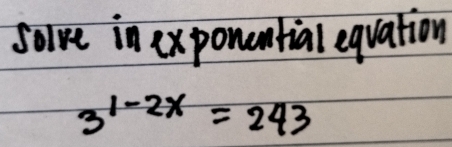 Solve in exponential equation
3^{1-2x} = 243